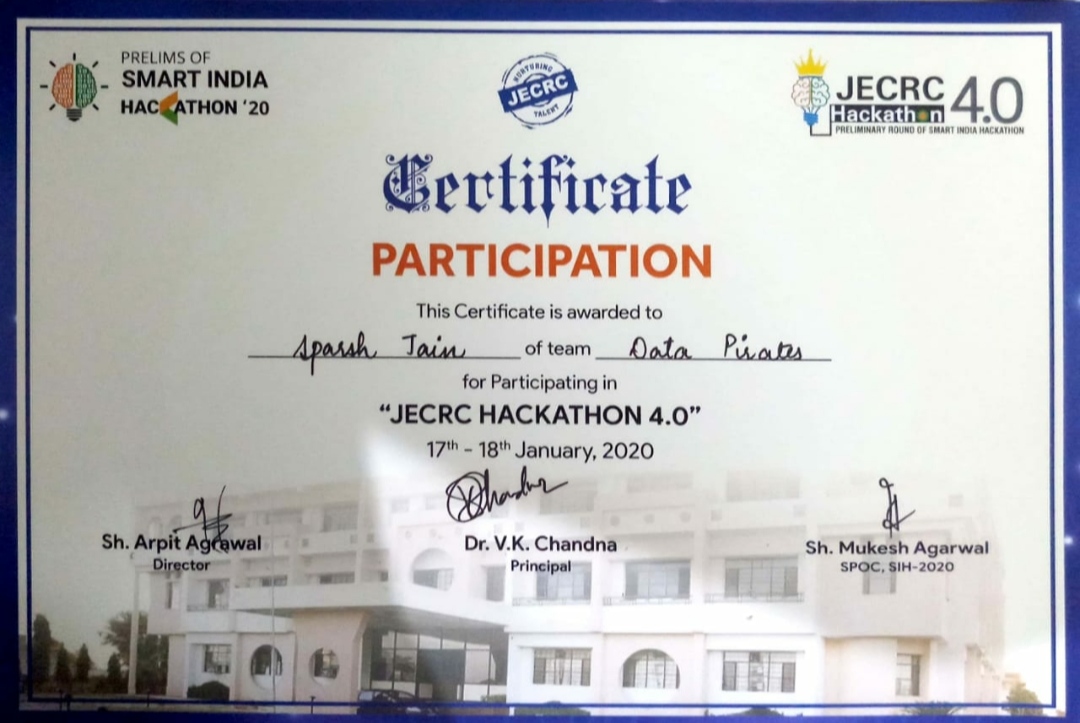 PRELIMS OF
SMART INDIA
HACKATHON '20
NURTURING
JECRC
TALENT
JECRC
Hackathon 4.0
PRELIMINARY ROUND OF SMART INDIA HACKATHON
Certificate
PARTICIPATION
This Certificate is awarded to
Sparsh Jain of team Data Pirates
for Participating in
“JECRC HACKATHON 4.0”
17th - 18th January, 2020
Sh. Arpit Agrawal
Director
Dr. V.K. Chandna
Principal
Sh. Mukesh Agarwal
SPOC, SIH-2020